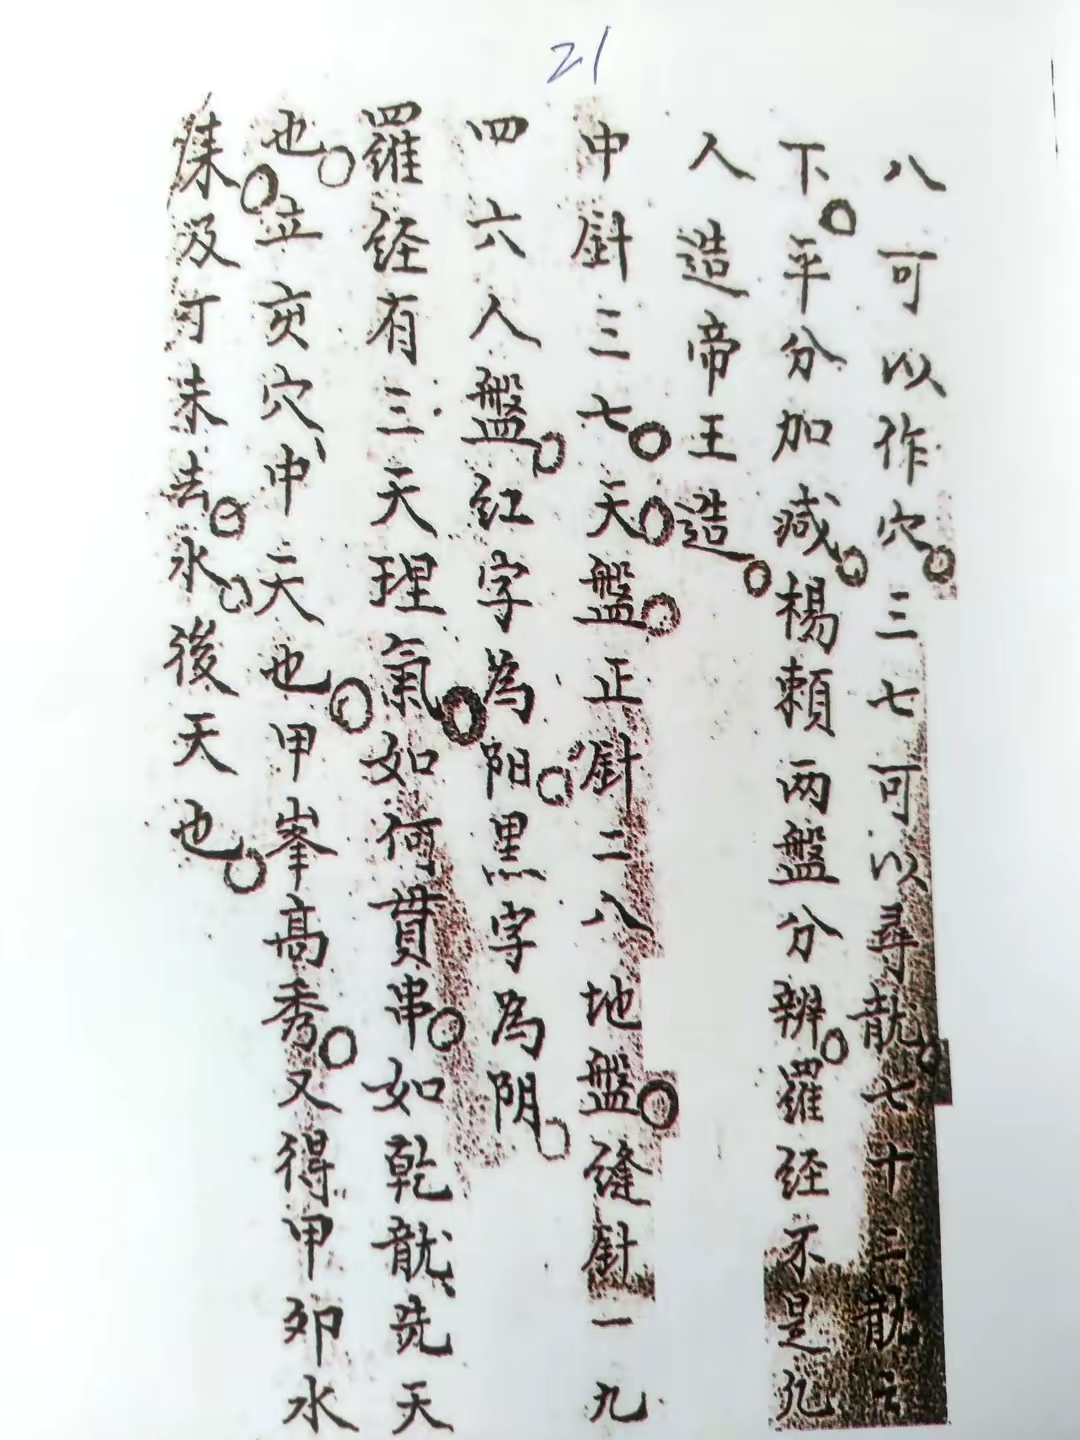 21
八可以作穴。三七可以尋龍。七十二龍之
下。平分加减。楊賴两盤分辨。羅经不是凡
人造帝王造。
中針三七。天。盤。正針二八地盤。縫針一九
四六人盤。紅字為阳。黑字為阴。
羅经有三天理氣。如何貫串。如乾龍、先天
也。立亥穴、中天也。甲峯高秀。又得甲卯水
来。及丁未去。水。後天也。